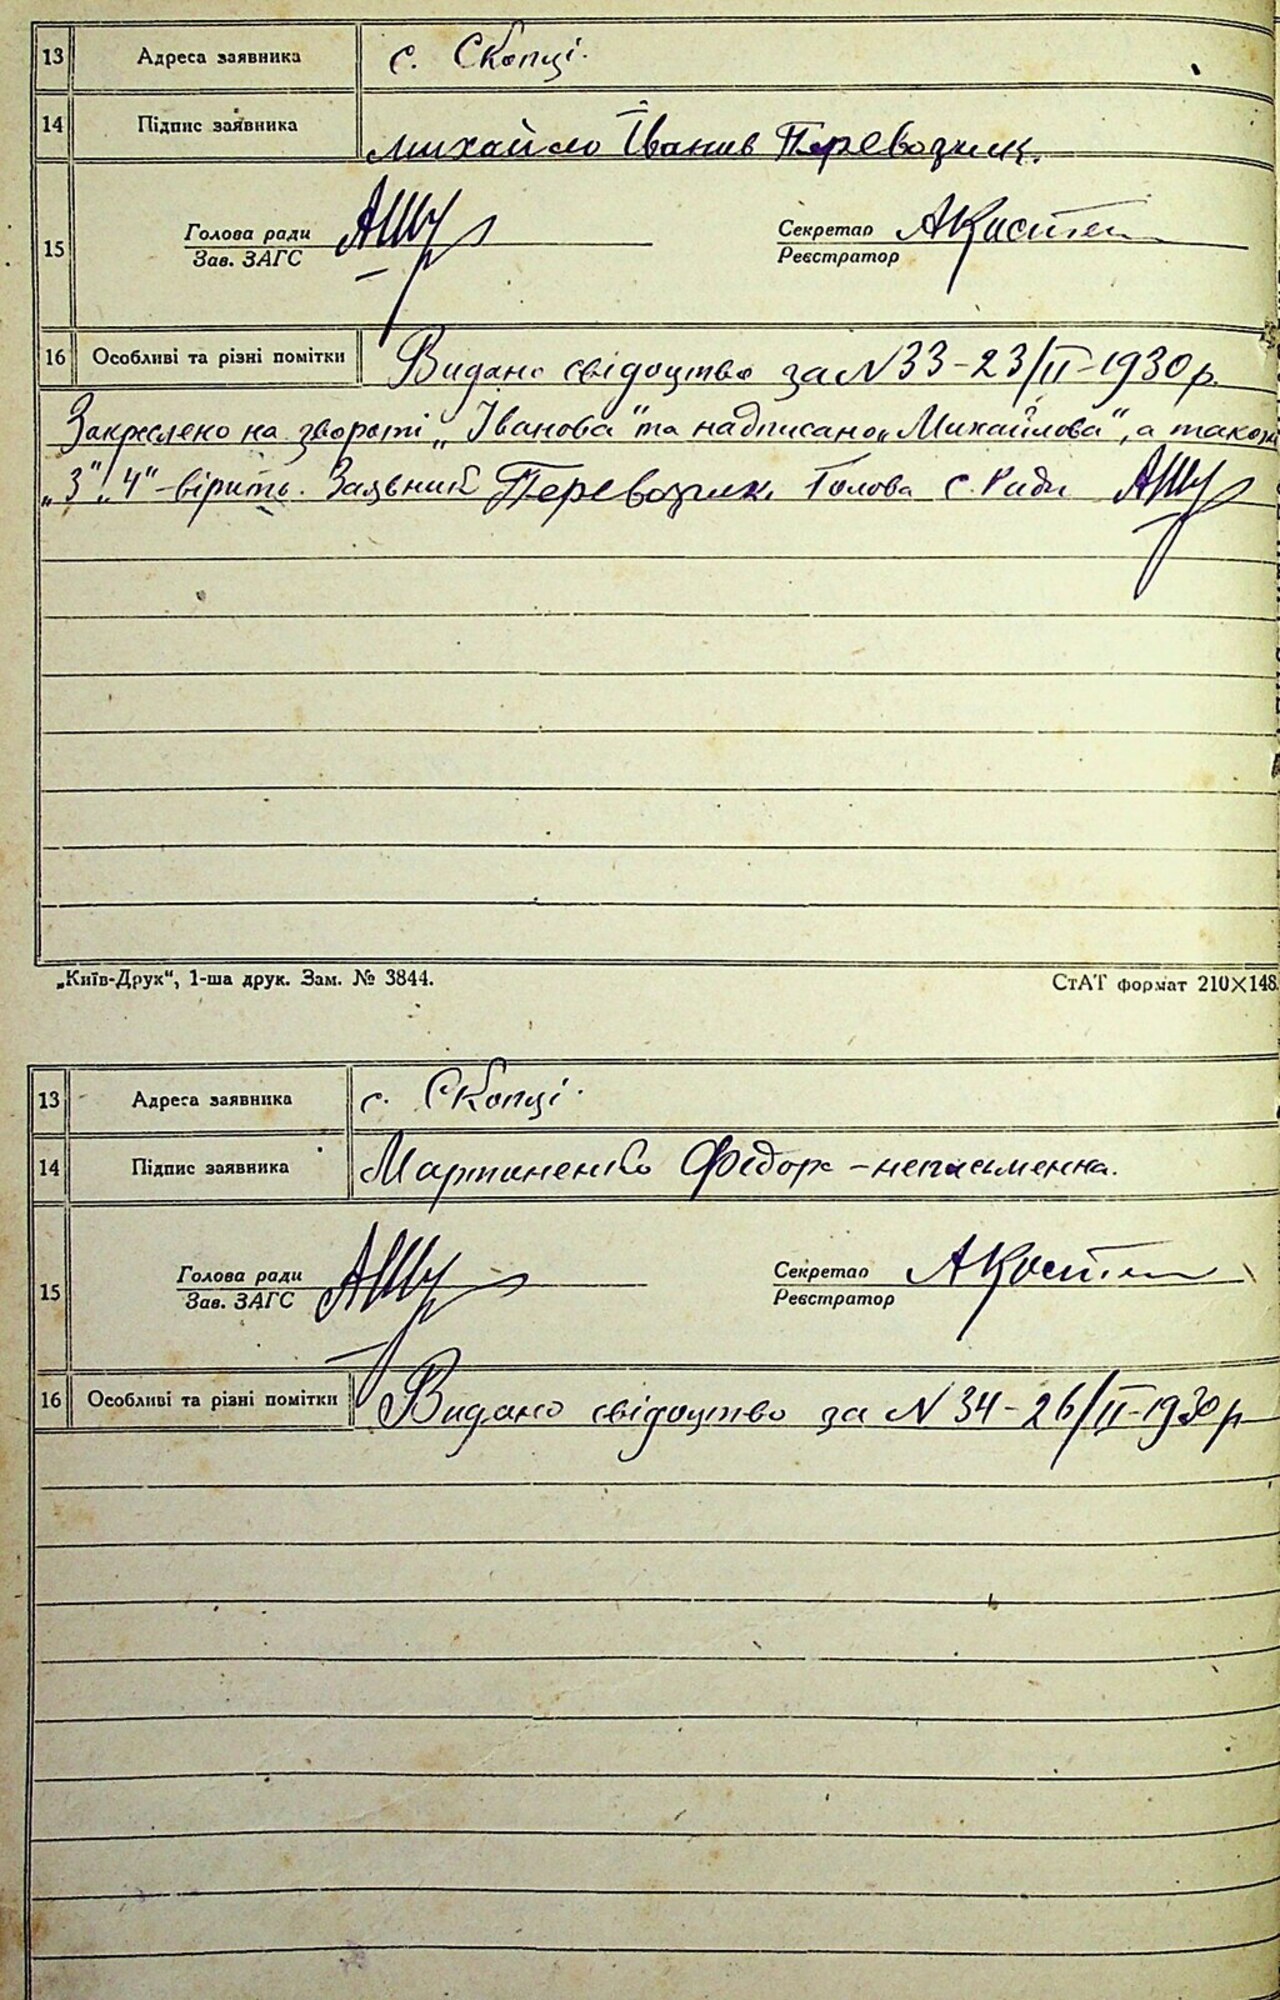 13 Адреса заявника с. Скопці.
14 Підпис заявника Михайло Іванив Перевозник.
15 Голова ради Секретар
Зав. ЗАГС Реєстратор
16 Особливі та різні помітки Видано свідоцтво за N33-23/II-1930 р.
Закреслено на звороті „Іванова" та надписано „Михайлова", а також
„3" „4" - вірить. Заявник Перевозник. Голова с. Ради
„Київ-Друк", 1-ша друк. Зам. № 3844. СтАТ формат 210×148.
13 Адреса заявника с. Скопці.
14 Підпис заявника Мартиненко Федора - неписьменна.
15 Голова ради Секретар
Зав. ЗАГС Реєстратор
16 Особливі та різні помітки Видано свідоцтво за N 34-26/II-1930 р